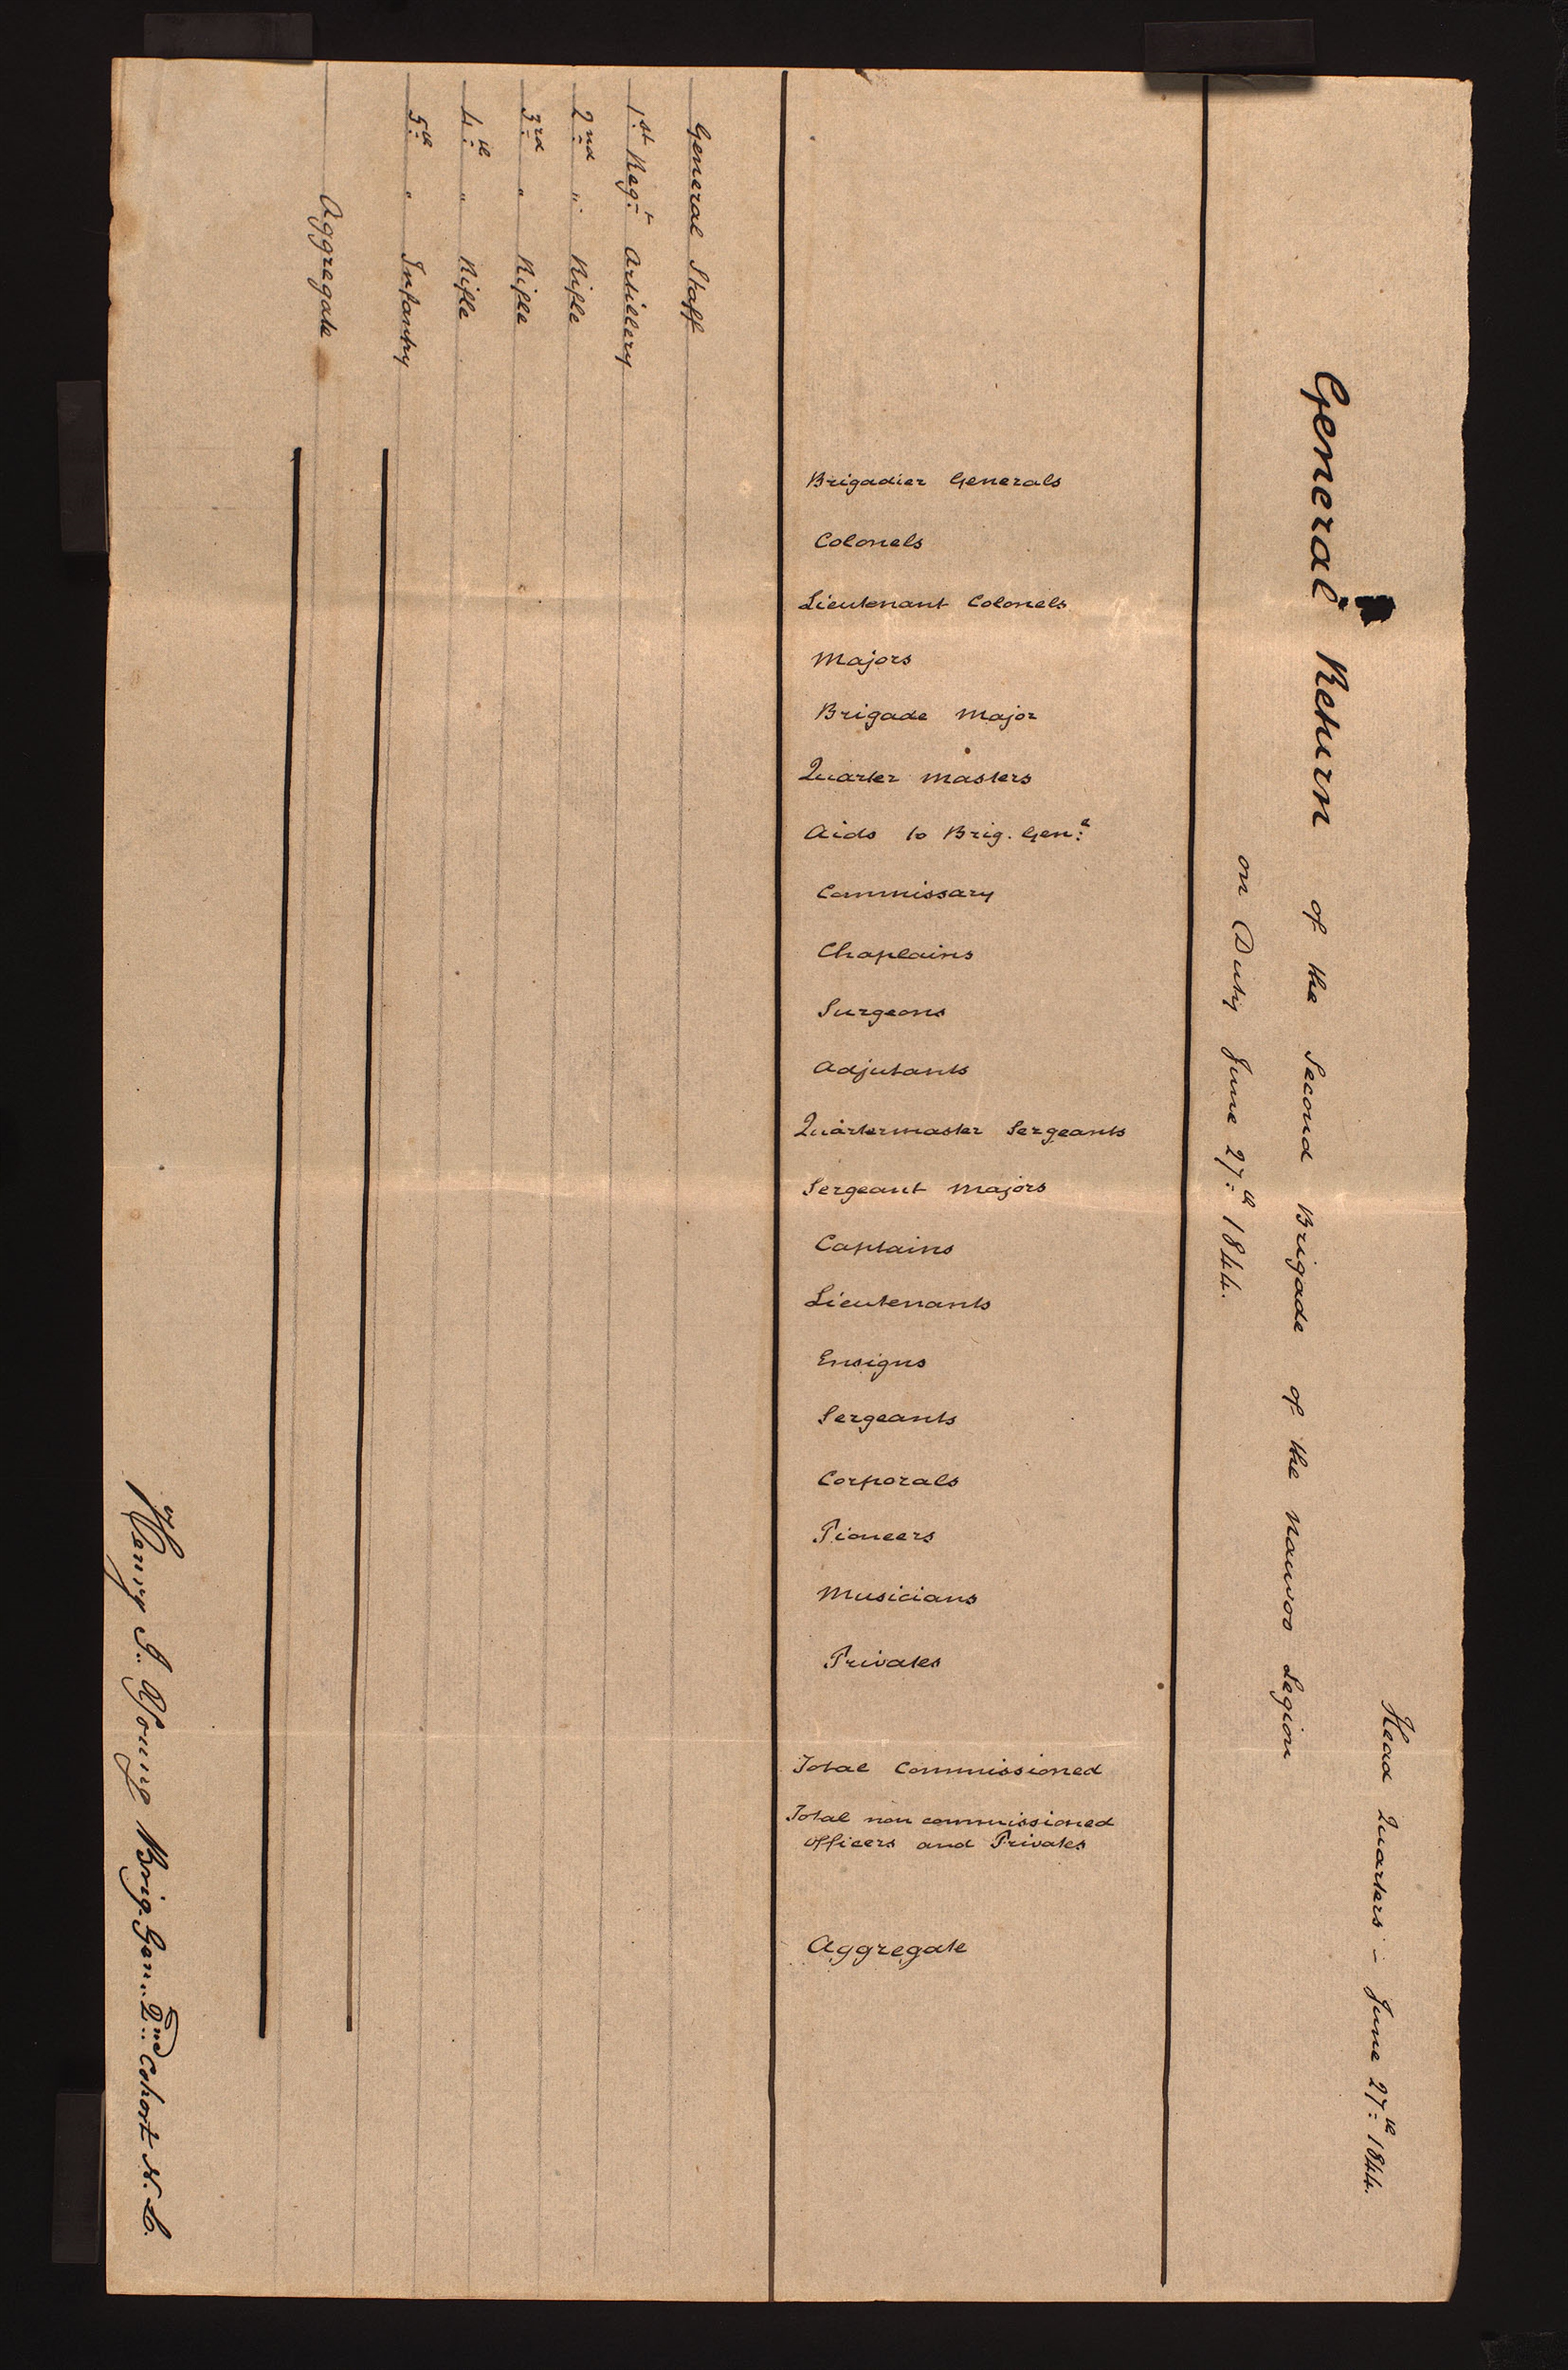 Head Quarters – June 27th 1844.
General Return of the Second Brigade of the Nauvoo Legion
on Duty June 27th 1844.
Brigadier Generals
Colonels
Lieutenant Colonels
Majors
Brigade Major
Quarter Masters
Aids to Brig. Genl
Commissary
Chaplains
Surgeons
Adjutants
Quartermaster Sergeants
Sergeant Majors
Captains
Lieutenants
Ensigns
Sergeants
Corporals
Pioneers
Musicians
Privates
Total Commissioned
Total non commissioned
officers and Privates
Aggregate
General Staff
1st Regt Artillery
2nd " Rifle
3rd " Rifle
4th " Rifle
5th " Infantry
Aggregate
Henry I. Young Brig. Gen. 2nd Cohort N. L.